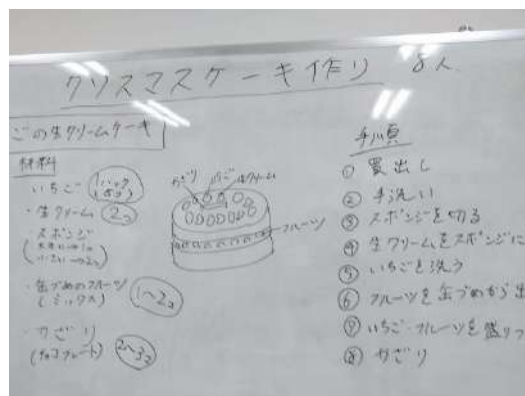 クリスマスケーキ作り 8人
ごの生クリームケーキ
材料
・いちご 1パック
・生クリーム 2コ
・スポンジ
(大きい→1コ
小さい→2コ)
・缶づめのフルーツ
(ミックス) 1〜2コ
・かざり
(チョコプレート) 2〜3コ
かざり いちご 生クリーム
フルーツ
手順
① 買出し
② 手洗い
③ スポンジを切る
④ 生クリームをスポンジに
⑤ いちごを洗う
⑥ フルーツを缶づめから出
⑦ いちご・フルーツを盛りつ
⑧ かざり